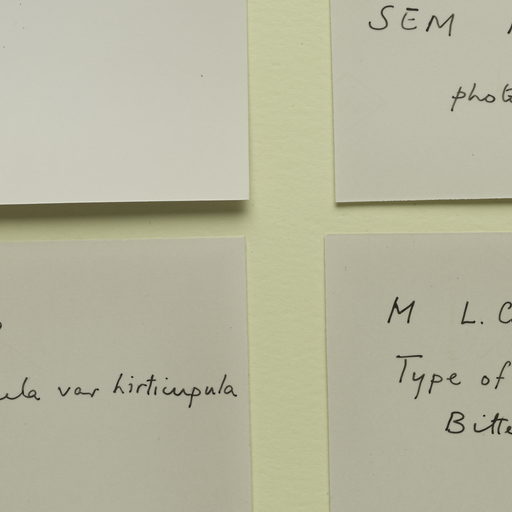 SEM
phot
ula var hirticupula
M L. C
Type of
Bitte